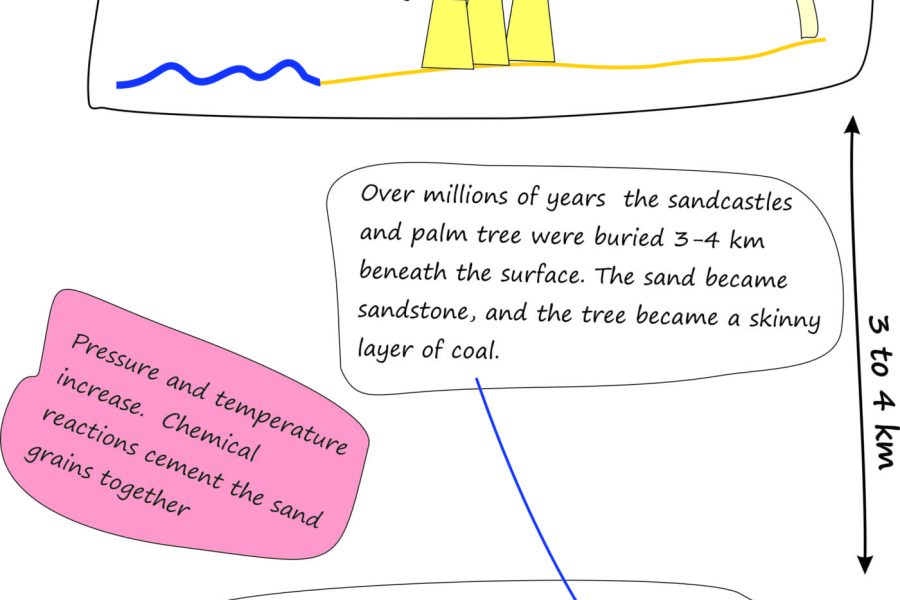 Over millions of years the sandcastles
and palm tree were buried 3-4 km
beneath the surface. The sand became
sandstone, and the tree became a skinny
layer of coal.
Pressure and temperature
increase. Chemical
reactions cement the sand
grains together
3 to 4 km